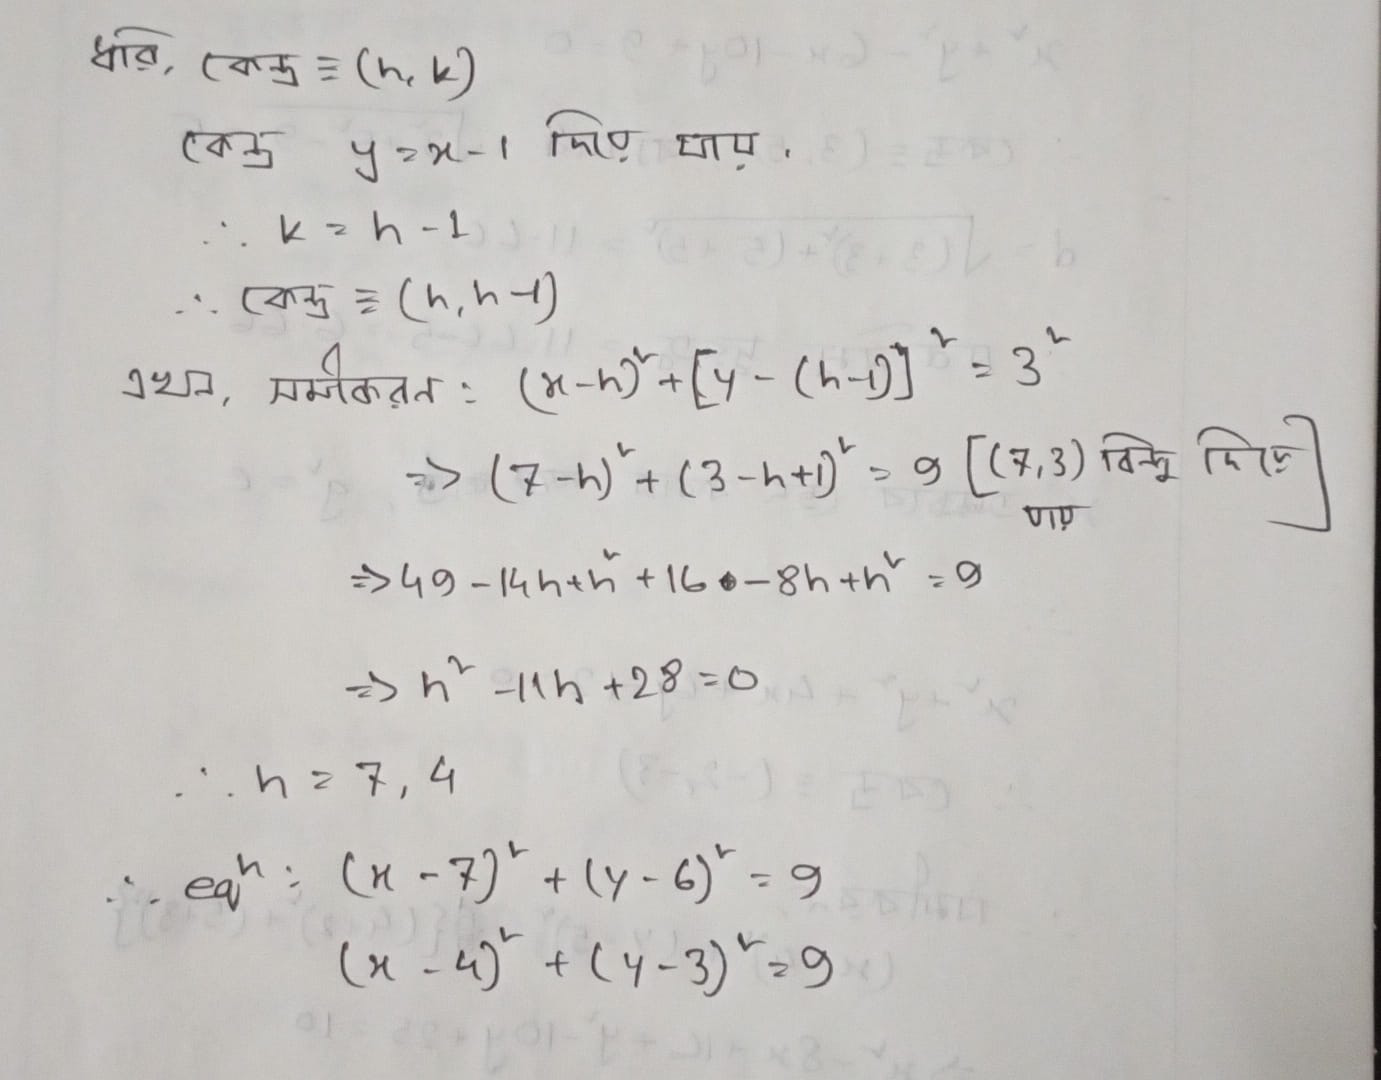 ধরি, কেন্দ্র ≡ (h, k)
কেন্দ্র y = x - 1 দিয়ে যায়.
∴ k = h - 1
∴ কেন্দ্র ≡ (h, h-1)
এখন, সমীকরন : (x-h)² + [y - (h-1)]² = 3²
=> (7-h)² + (3-h+1)² = 9 [(7,3) বিন্দু দিয়ে
যায়]
=> 49 - 14h + h² + 16 - 8h + h² = 9
=> h² - 11h + 28 = 0
∴ h = 7, 4
∴ eqⁿ : (x - 7)² + (y - 6)² = 9
(x - 4)² + (y - 3)² = 9